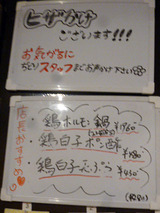 ヒザかけ
ございます!!!
お気がるに
スタッフまでお声かけ下さい
店長おすすめ
・鶏ホルモン鍋
・鶏白子ポン酢
・鶏白子天ぷら ¥450